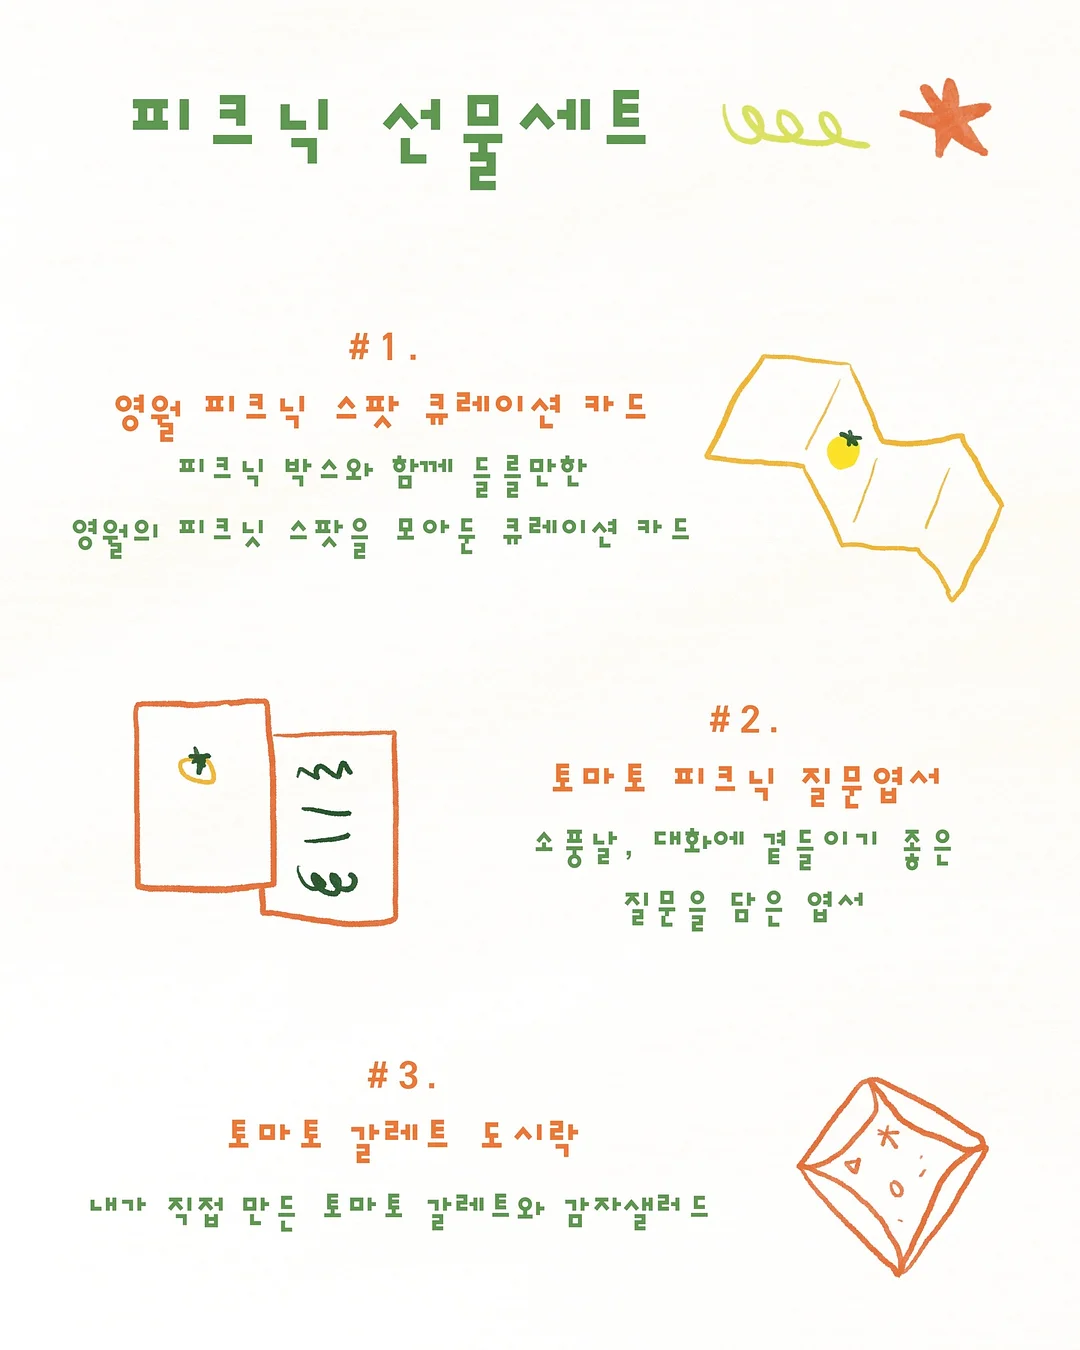 피크닉 선물세트
#1.
영월 피크닉 스팟 큐레이션 카드
피크닉 박스와 함께 들를만한
영월의 피크닛 스팟을 모아둔 큐레이션 카드
#2.
토마토 피크닉 질문엽서
소풍날, 대화에 곁들이기 좋은
질문을 담은 엽서
#3.
토마토 갈레트 도시락
내가 직접 만든 토마토 갈레트와 감자샐러드